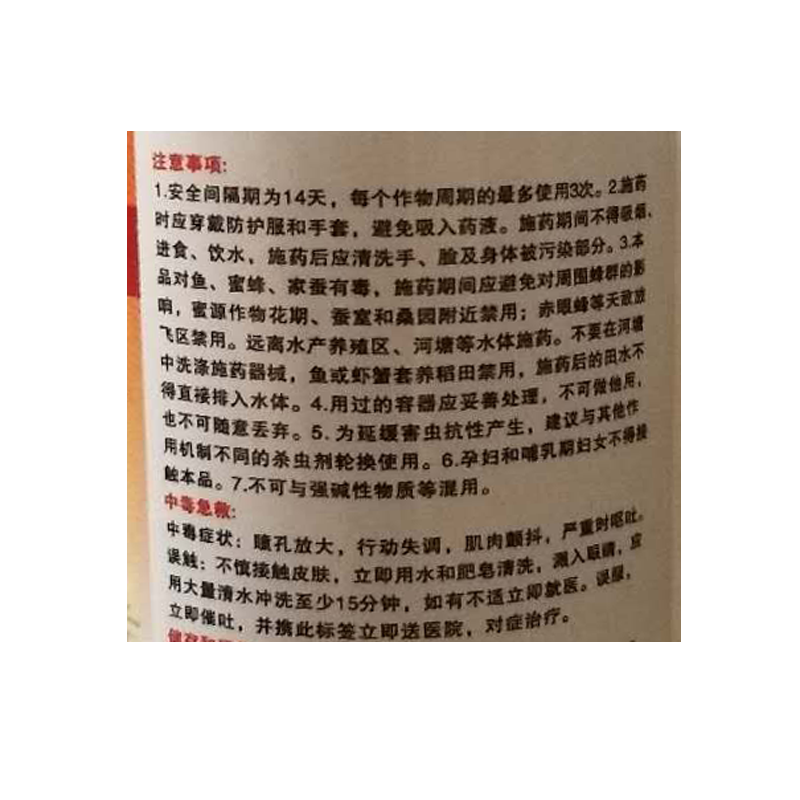 注意事项:
1.安全间隔期为14天，每个作物周期的最多使用3次。2.施药
时应穿戴防护服和手套，避免吸入药液。施药期间不得吸烟、
进食、饮水，施药后应清洗手、脸及身体被污染部分。3.本
品对鱼、蜜蜂、家蚕有毒，施药期间应避免对周围蜂群的影
响，蜜源作物花期、蚕室和桑园附近禁用；赤眼蜂等天敌放
飞区禁用。远离水产养殖区、河塘等水体施药。不要在河塘
中洗涤施药器械，鱼或虾蟹套养稻田禁用，施药后的田水不
得直接排入水体。4.用过的容器应妥善处理，不可做他用，
也不可随意丢弃。5.为延缓害虫抗性产生，建议与其他作
用机制不同的杀虫剂轮换使用。6.孕妇和哺乳期妇女不得接
触本品。7.不可与强碱性物质等混用。
中毒急救:
中毒症状：瞳孔放大，行动失调，肌肉颤抖，严重时呕吐。
误触：不慎接触皮肤，立即用水和肥皂清洗，溅入眼睛，应
用大量清水冲洗至少15分钟，如有不适立即就医。误服，
立即催吐，并携此标签立即送医院，对症治疗。